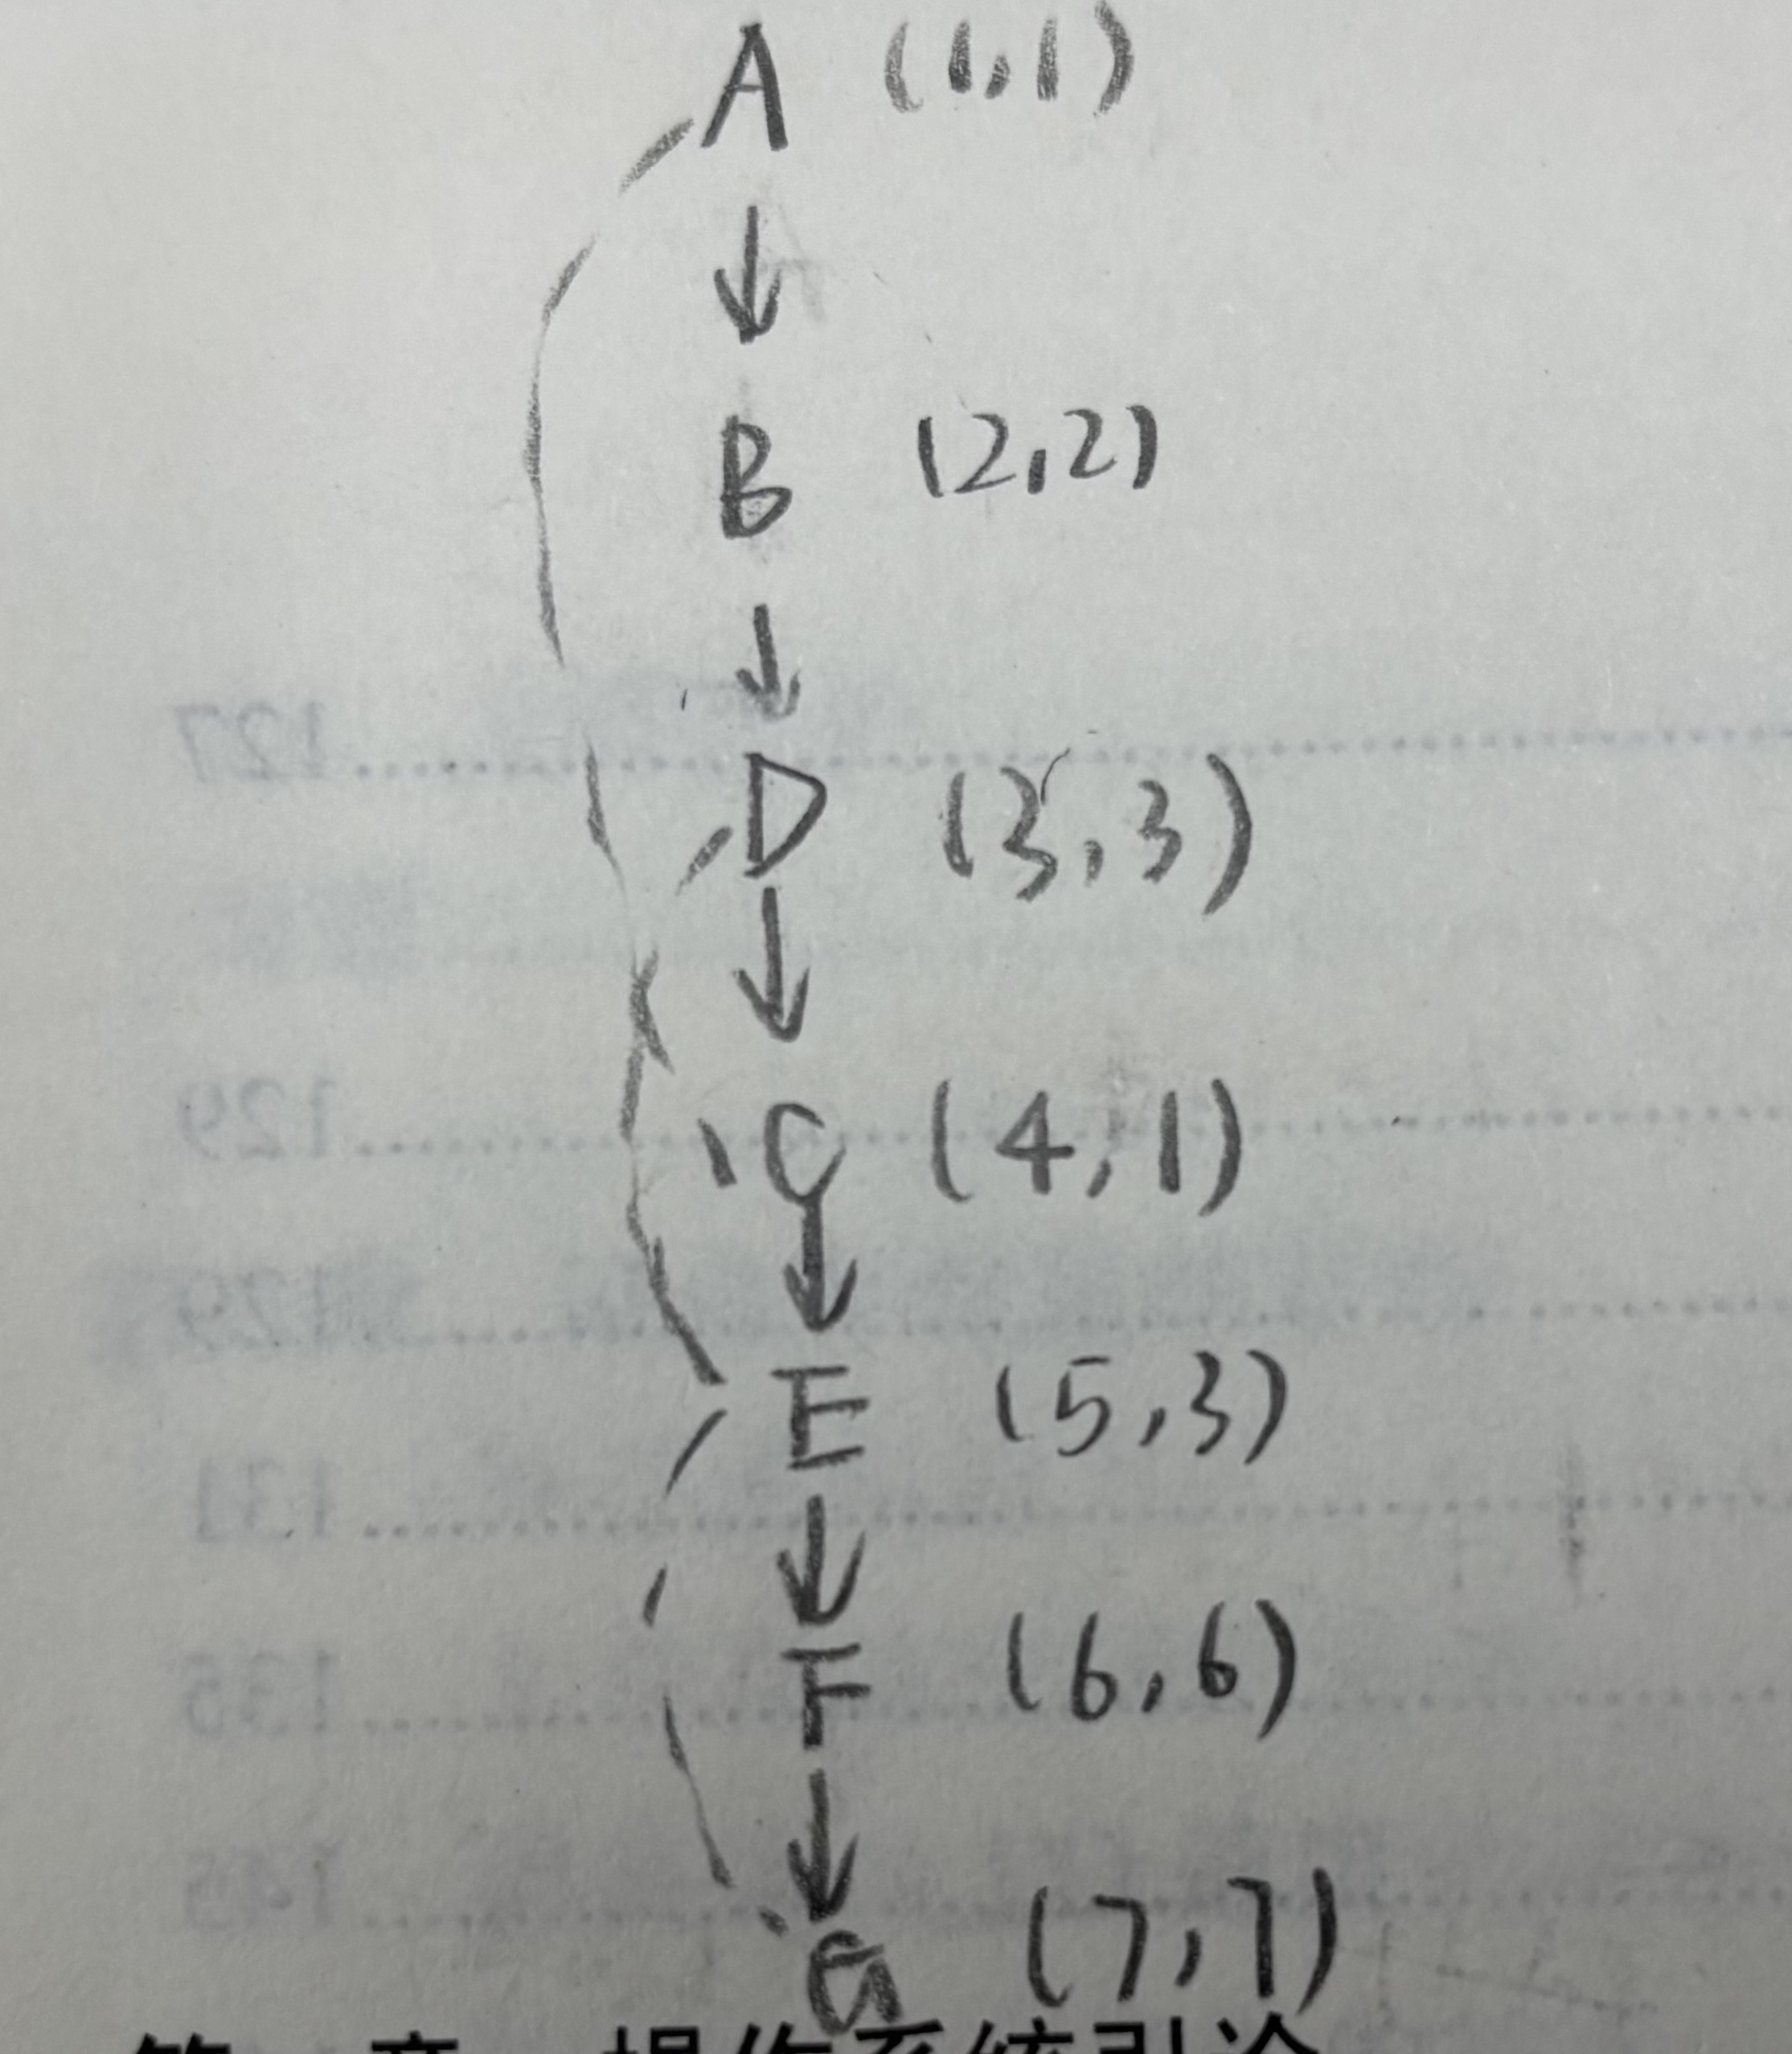 A (1,1)
B (2,2)
D (3,3)
C (4,1)
E (5,3)
F (6,6)
G (7,7)
127
129
129
131
135
145
操作系统引论